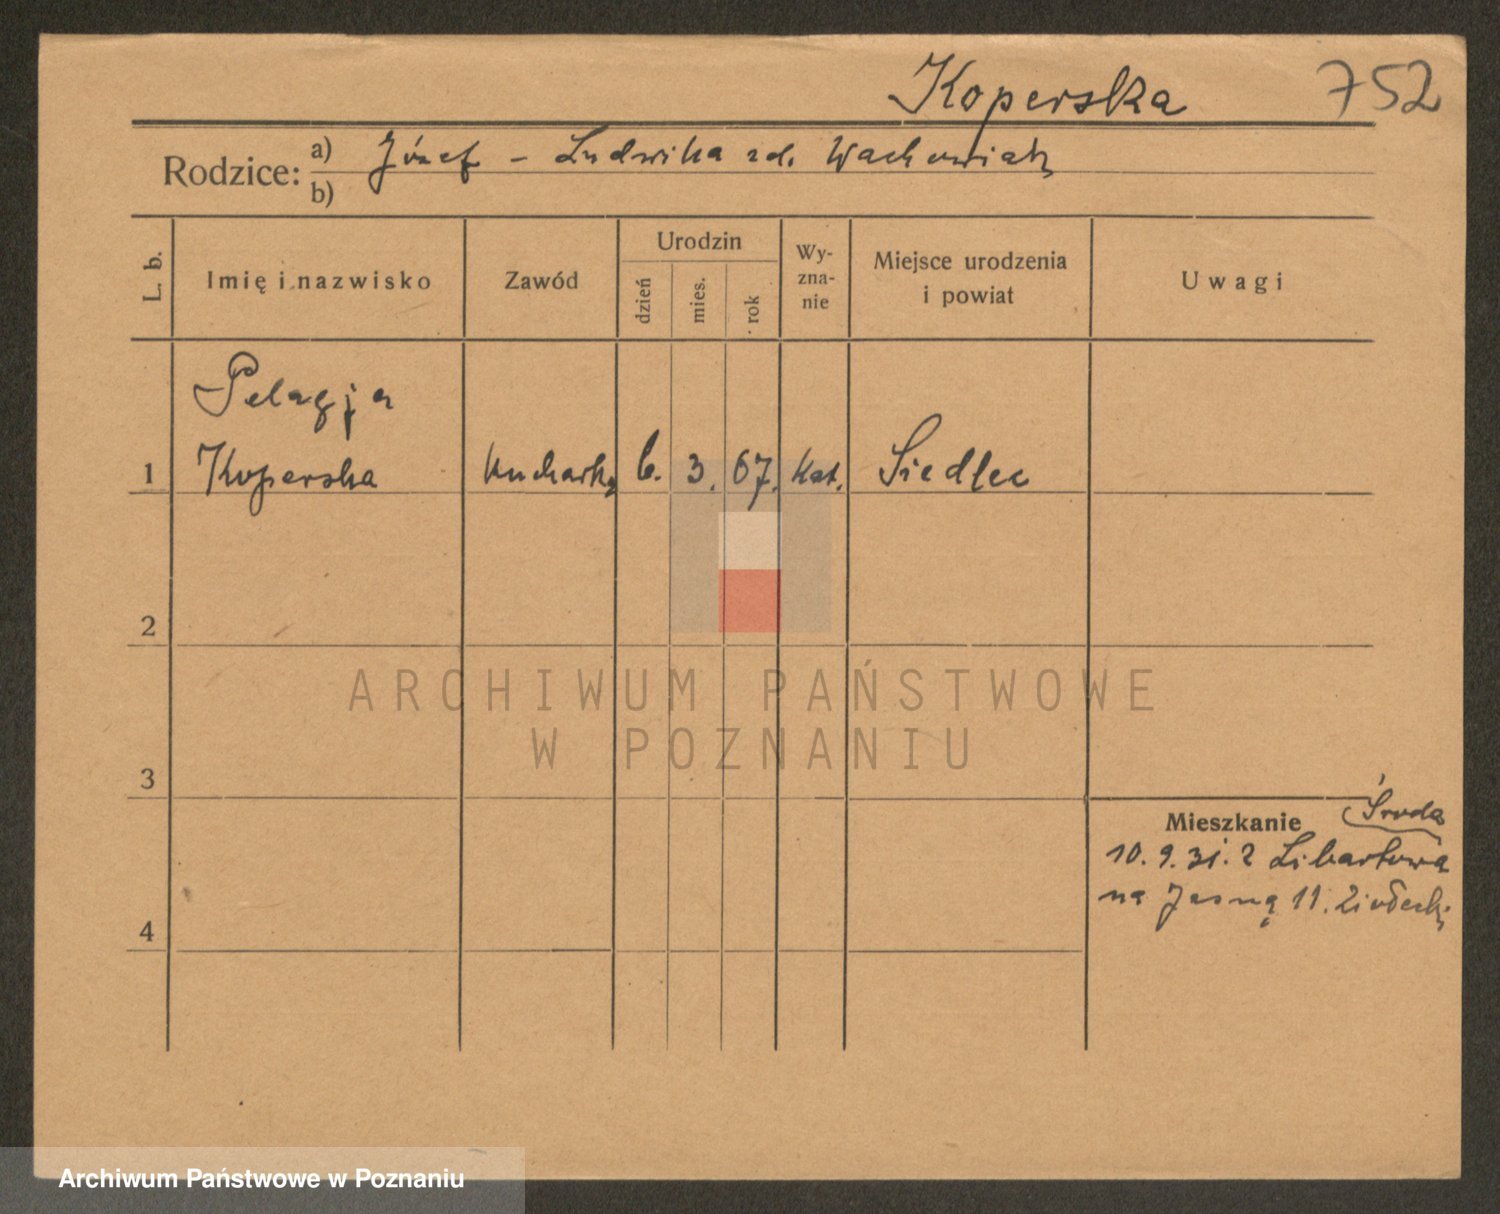 Koperska 752
Rodzice: a) Józef - Ludwika zd. Wachowiak
b)
L. b. Imię i nazwisko Zawód Urodzin dzień mies. rok Wy-zna-nie Miejsce urodzenia i powiat Uwagi
Pelagja
1 Koperska kucharka 6. 3. 67. kat. Siedlec
2
ARCHIWUM PAŃSTWOWE
W POZNANIU
3
Mieszkanie Środa
10. 9. 31. z Libartowa
na Jasną 11.
4
Archiwum Państwowe w Poznaniu